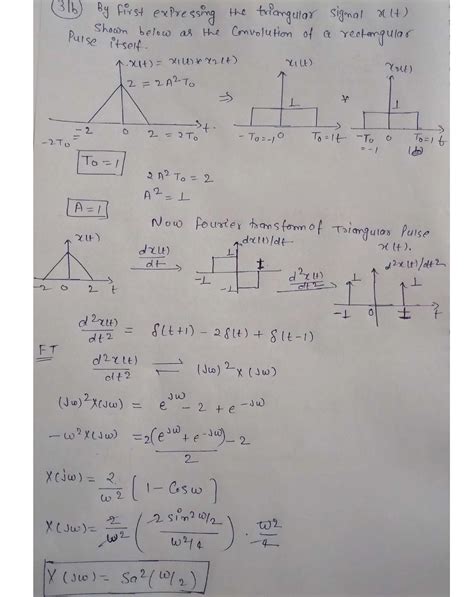 3(b) By first expressing the triangular signal x(t)
Shown below as the Convolution of a rectangular
Pulse itself.
x(t) = x1(t) * x2(t)
x1(t)
x2(t)
2 = 2A²T0
⇒
1
*
1
-2 0 2 = 2T0 t
-2T0 =
-T0 = -1 0 T0 = 1 t
-T0 = -1 0 T0 = 1 t
T0 = 1
2A²T0 = 2
A² = 1
A = 1
Now fourier transform of Triangular Pulse
x(t).
x(t)
dx(t)/dt
d²x(t)/dt²
dx(t)/dt →
d²x(t)/dt² →
-2 0 2 t
-1 1 -1
1 1
-1 0 1 t
d²x(t)/dt² = δ(t+1) - 2δ(t) + δ(t-1)
FT
d²x(t)/dt² ⇌ (jω)² X(jω)
(jω)² X(jω) = e^jω - 2 + e^-jω
-ω² X(jω) = 2(e^jω + e^-jω)/2 - 2
X(jω) = 2/ω² [1 - Cosω]
X(jω) = 2/ω² (2 sin² ω/2 / ω²/4) · ω²/4
X(jω) = Sa²(ω/2)